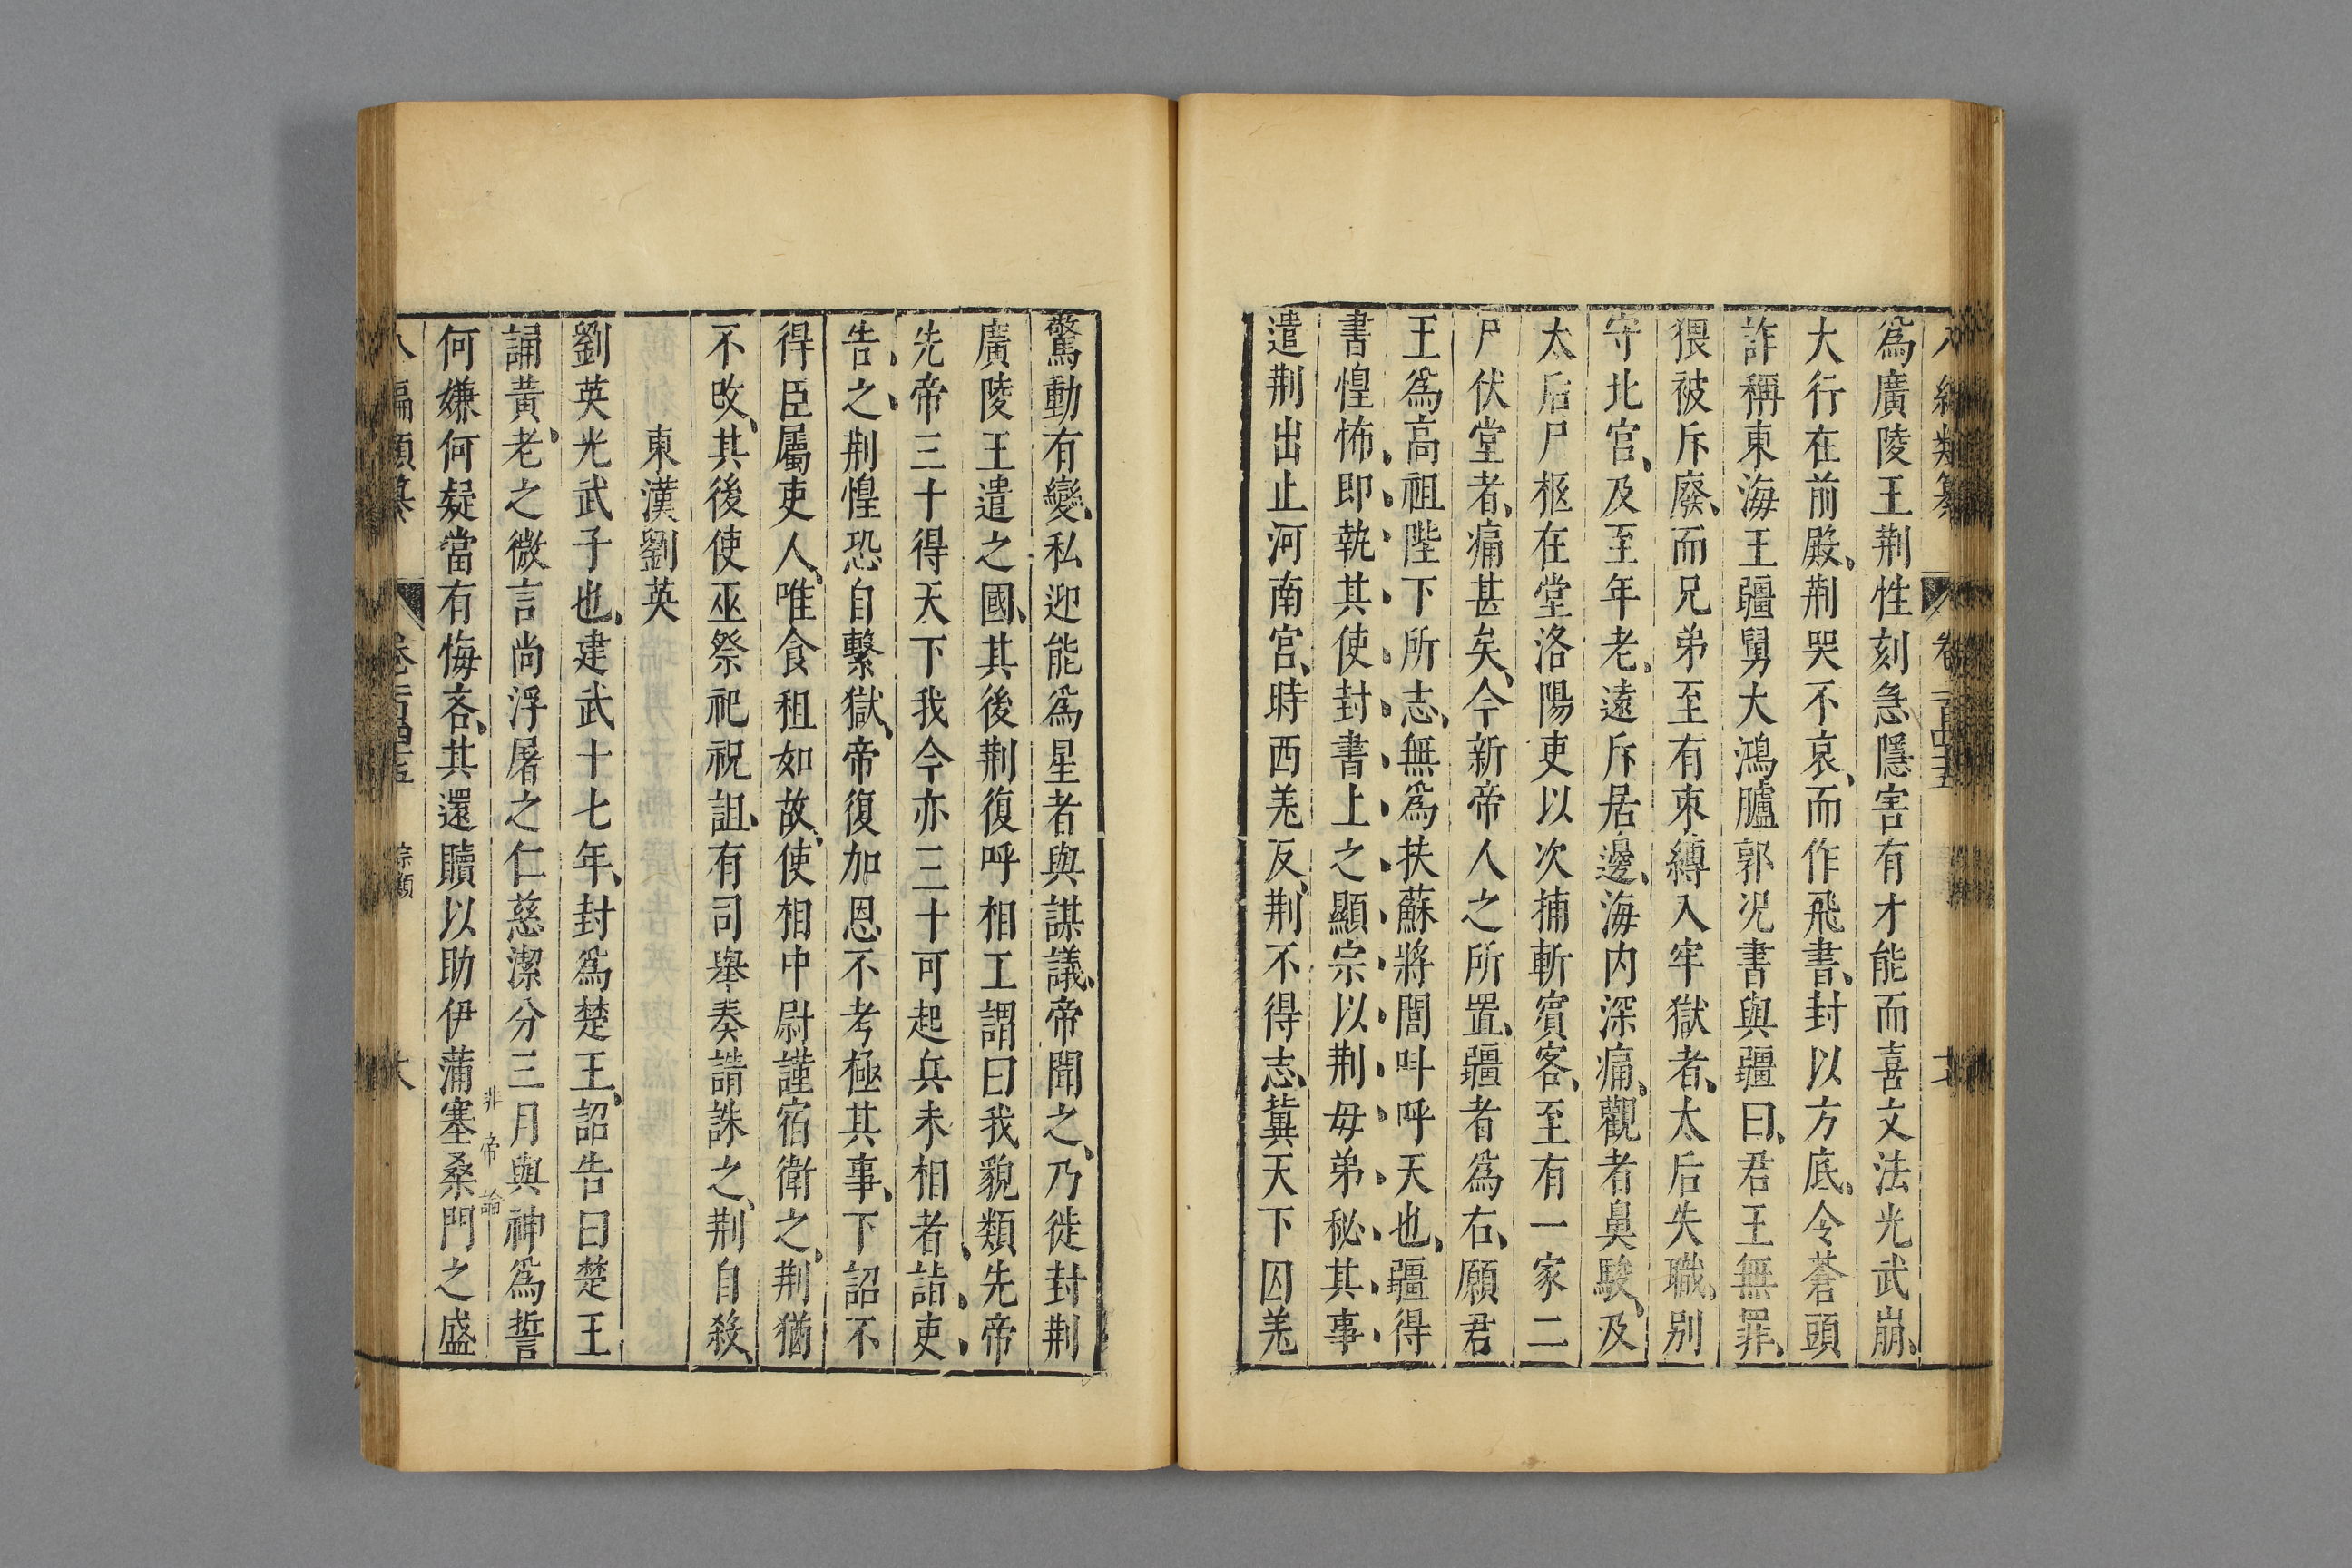 八編類纂 卷一百四十五
爲廣陵王荆性刻急隱害有才能而喜文法光武崩、
大行在前殿、荆哭不哀、而作飛書、封以方底、令蒼頭
詐稱東海王疆舅大鴻臚郭況書與疆曰、君王無罪、
猥被斥廢、而兄弟至有束縛入牢獄者、太后失職、別
守北宮、及至年老、遠斥居邊、海內深痛、觀者鼻駿、及
太后尸柩在堂洛陽吏以次捕斬賓客、至有一家二
尸伏堂者、痛甚矣、今新帝人之所置、疆者爲右、願君
王爲高祖陛下所志、無爲扶蘇將閭呌呼天也、疆得
書惶怖、即執其使封書上之顯宗以荆毋弟秘其事
遣荆出止河南宮、時西羗反、荆不得志、冀天下因羗
驚動有變、私迎能爲星者與謀議、帝聞之、乃徙封荆
廣陵王遣之國、其後荆復呼相工謂曰我貌類先帝
先帝三十得天下我今亦三十可起兵未相者、詣吏
告之荆惶恐自繫獄、帝復加恩不考極其事、下詔不
得臣屬吏人、唯食租如故、使相中尉謹宿衛之、荆猶
不改、其後使巫祭祀祝詛、有司舉奏請誅之、荆自殺、
東漢劉英
劉英光武子也、建武十七年、封爲楚王、詔告曰楚王
誦黃老之微言尚浮屠之仁慈潔分三月與神爲誓
非帝論
何嫌何疑當有悔吝、其還贖以助伊蒲塞桑門之盛
八編類纂 卷一百四十五 宗類